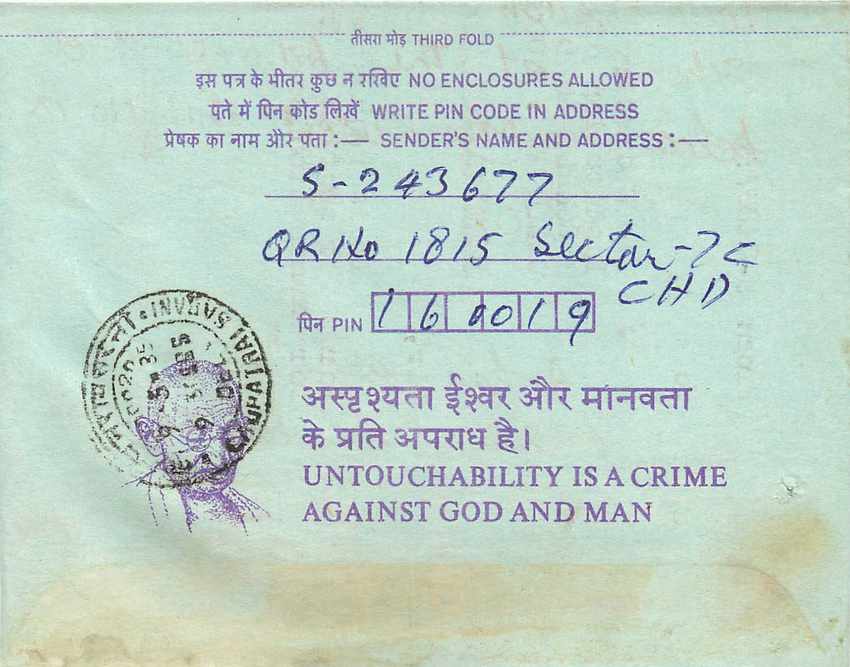 तीसरा मोड़ THIRD FOLD
इस पत्र के भीतर कुछ न रखिए NO ENCLOSURES ALLOWED
पते में पिन कोड लिखें WRITE PIN CODE IN ADDRESS
प्रेषक का नाम और पता :— SENDER'S NAME AND ADDRESS :—
S-243677
QR No 1815 Sector-7C
CHD
पिन PIN 160019
अस्पृश्यता ईश्वर और मानवता
के प्रति अपराध है।
UNTOUCHABILITY IS A CRIME
AGAINST GOD AND MAN